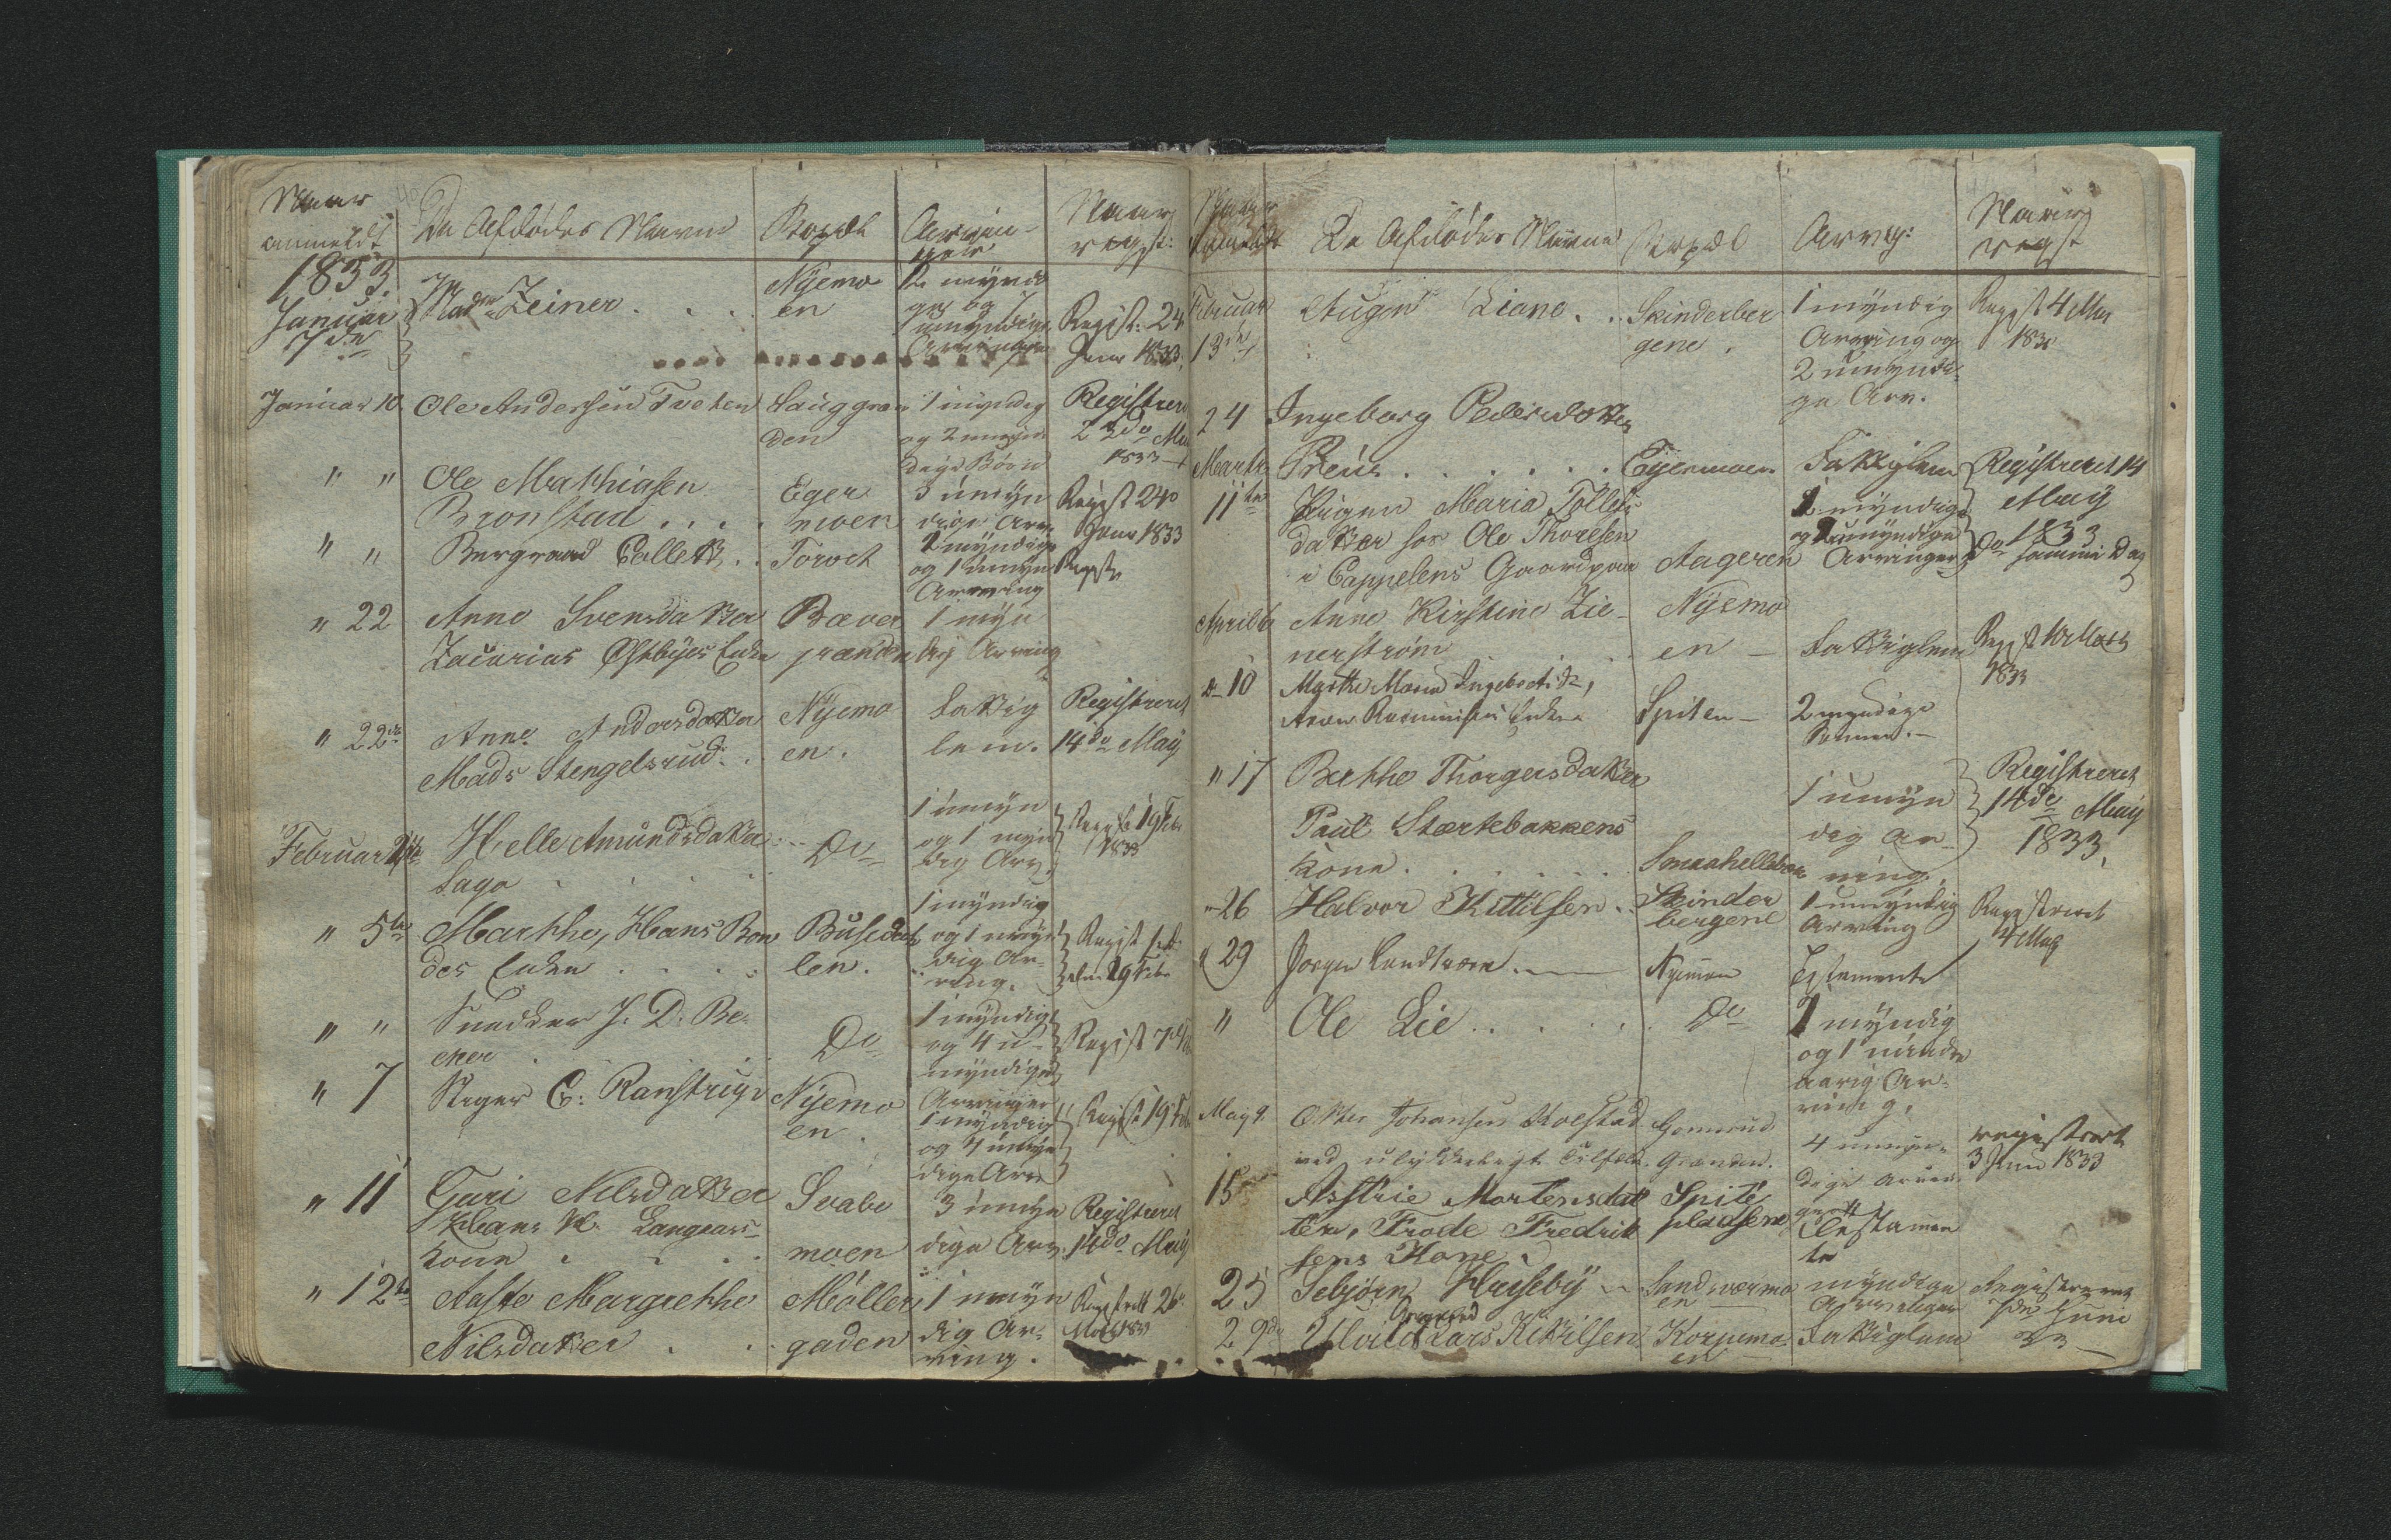 Naar
anmeldt
De Afdødes Navne
Bopæl
Arvin-
gere
Naar
regist:
1833
Januari
7de
Madm Zeiner . . .
Nyemo
en
2 myndi
ge og
1 umyndige
Arvinger
Regist: 24
Janr 1833
Januar 10
Ole Andersen Tveten
Lauggran
den
1 myndig
og 2 umyn
dige Børn
Registreret
23de
1833
" "
Ole Matthiasen
Bronstad . . . .
Eger
moen
3 umyn
dige Arv.
Regist 24
Janr 1833
" "
Bergraad Collett . .
Torvet
2 myndige
og 1 umyn
Arving
Regist
" 22
Anne Svensdatter
Zacarias Østbyes Enke
Bæver
grænden
1 myn
dig Arving
" 22de
Anne Andersdatter
Mads Stengelsrud . .
Nyemo
en.
Fattig
lem.
Registreret
14de May
Februar
Helle Amundsdatter
Lago
Do
1 umyn
og 1 myn
dig Arv.
Regist 19 Feb
1833
" 5te
Marthe, Hans Bon
des Enke . . . .
Buschda
len.
1 myndig
og 1 umyn
dig Ar-
ving.
Regist
29 Feb
" "
Snedker J. D. Be-
cker
Do
1 myndig
og 4 u-
myndige
Arvinger
Regist 7
" 7
Stiger C. Ranstrup
Nyemo
en.
1 myndig
og 4 umyn
dige Arv
Regist 19 Feb
" 11
Guri Nilsdatter
Hans H. Langaas
Kone . . . .
Svabe
moen
3 umyn
dige Arv.
Registreret
14de May
" 12te
Aaste Margrethe
Nilsdatter . .
Møller
gaden
1 umyn
dig Ar-
ving.
De Afdødes Navne
Bopæl
Arvg:
Naar
regist
Februar
13de
Liane . .
Skinderber
gene .
1 myndig
Arving og
2 umyndi-
ge Arv.
Regist 4 May
24
Ingeborg Pedersdatter
Preus . . . . . . .
Egermoen
Fattiglem
Registreret 14
May
1833
Marts
11te
Pigen Maria Tollefs
datter hos Ole Thoresen
i Cappelens Gaardpaa
Aageren
myndige
og umyndige
Arvinger
Do samme Dag
April 6
Anne Kirstine Zie-
nerstrøm
Nyemo
en -
Fattiglem
Regist
1833
" 10
Marthe Maria Ingebretsd.,
Enke
Spiten -
2 myndige
Sønner. -
" 17
Berthe Thorgersdatter
Paul Stærtebakkens
Kone . . . . . . .
Smaahellebak
1 umyn
dig Ar-
ving.
Registreret
14de May
1833,
" 26
Halvor Kittilsen . .
Skinder
bergene
1 umyndig
Arving
Registreret
4 May
" 29
Jørgen Lundtvæn
Nyemoen
Testamente
"
Ole Lie . . . . . .
Do
1 myndig
og 1 minder
aarig Ar-
ving,
May 9.
Johansen Kolstad
ved ulykkeligt Tilfælde.
Gomsrud
Grænden.
4 umyn-
dige Arvin-
ger
registreret
3 Juni 1833
15
Asstrie Mortensdat
ter, Frode Fredrik
sens Kone.
Spite
pladsene
Testamen
te
25
Sebjørn Huseby -
Sandsværmo
en
myndige
Arvinger
Registreret
Juni
33
29de
Lars Kittilsen
Korpemo
en
Fattiglem